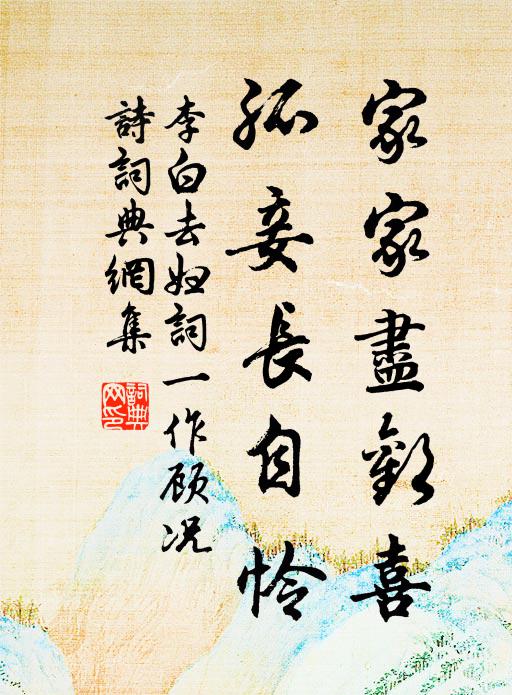 家家盡歡喜
孤妾長自怜
李白去妇詞一作顾况
詩詞典網集
詞典網印